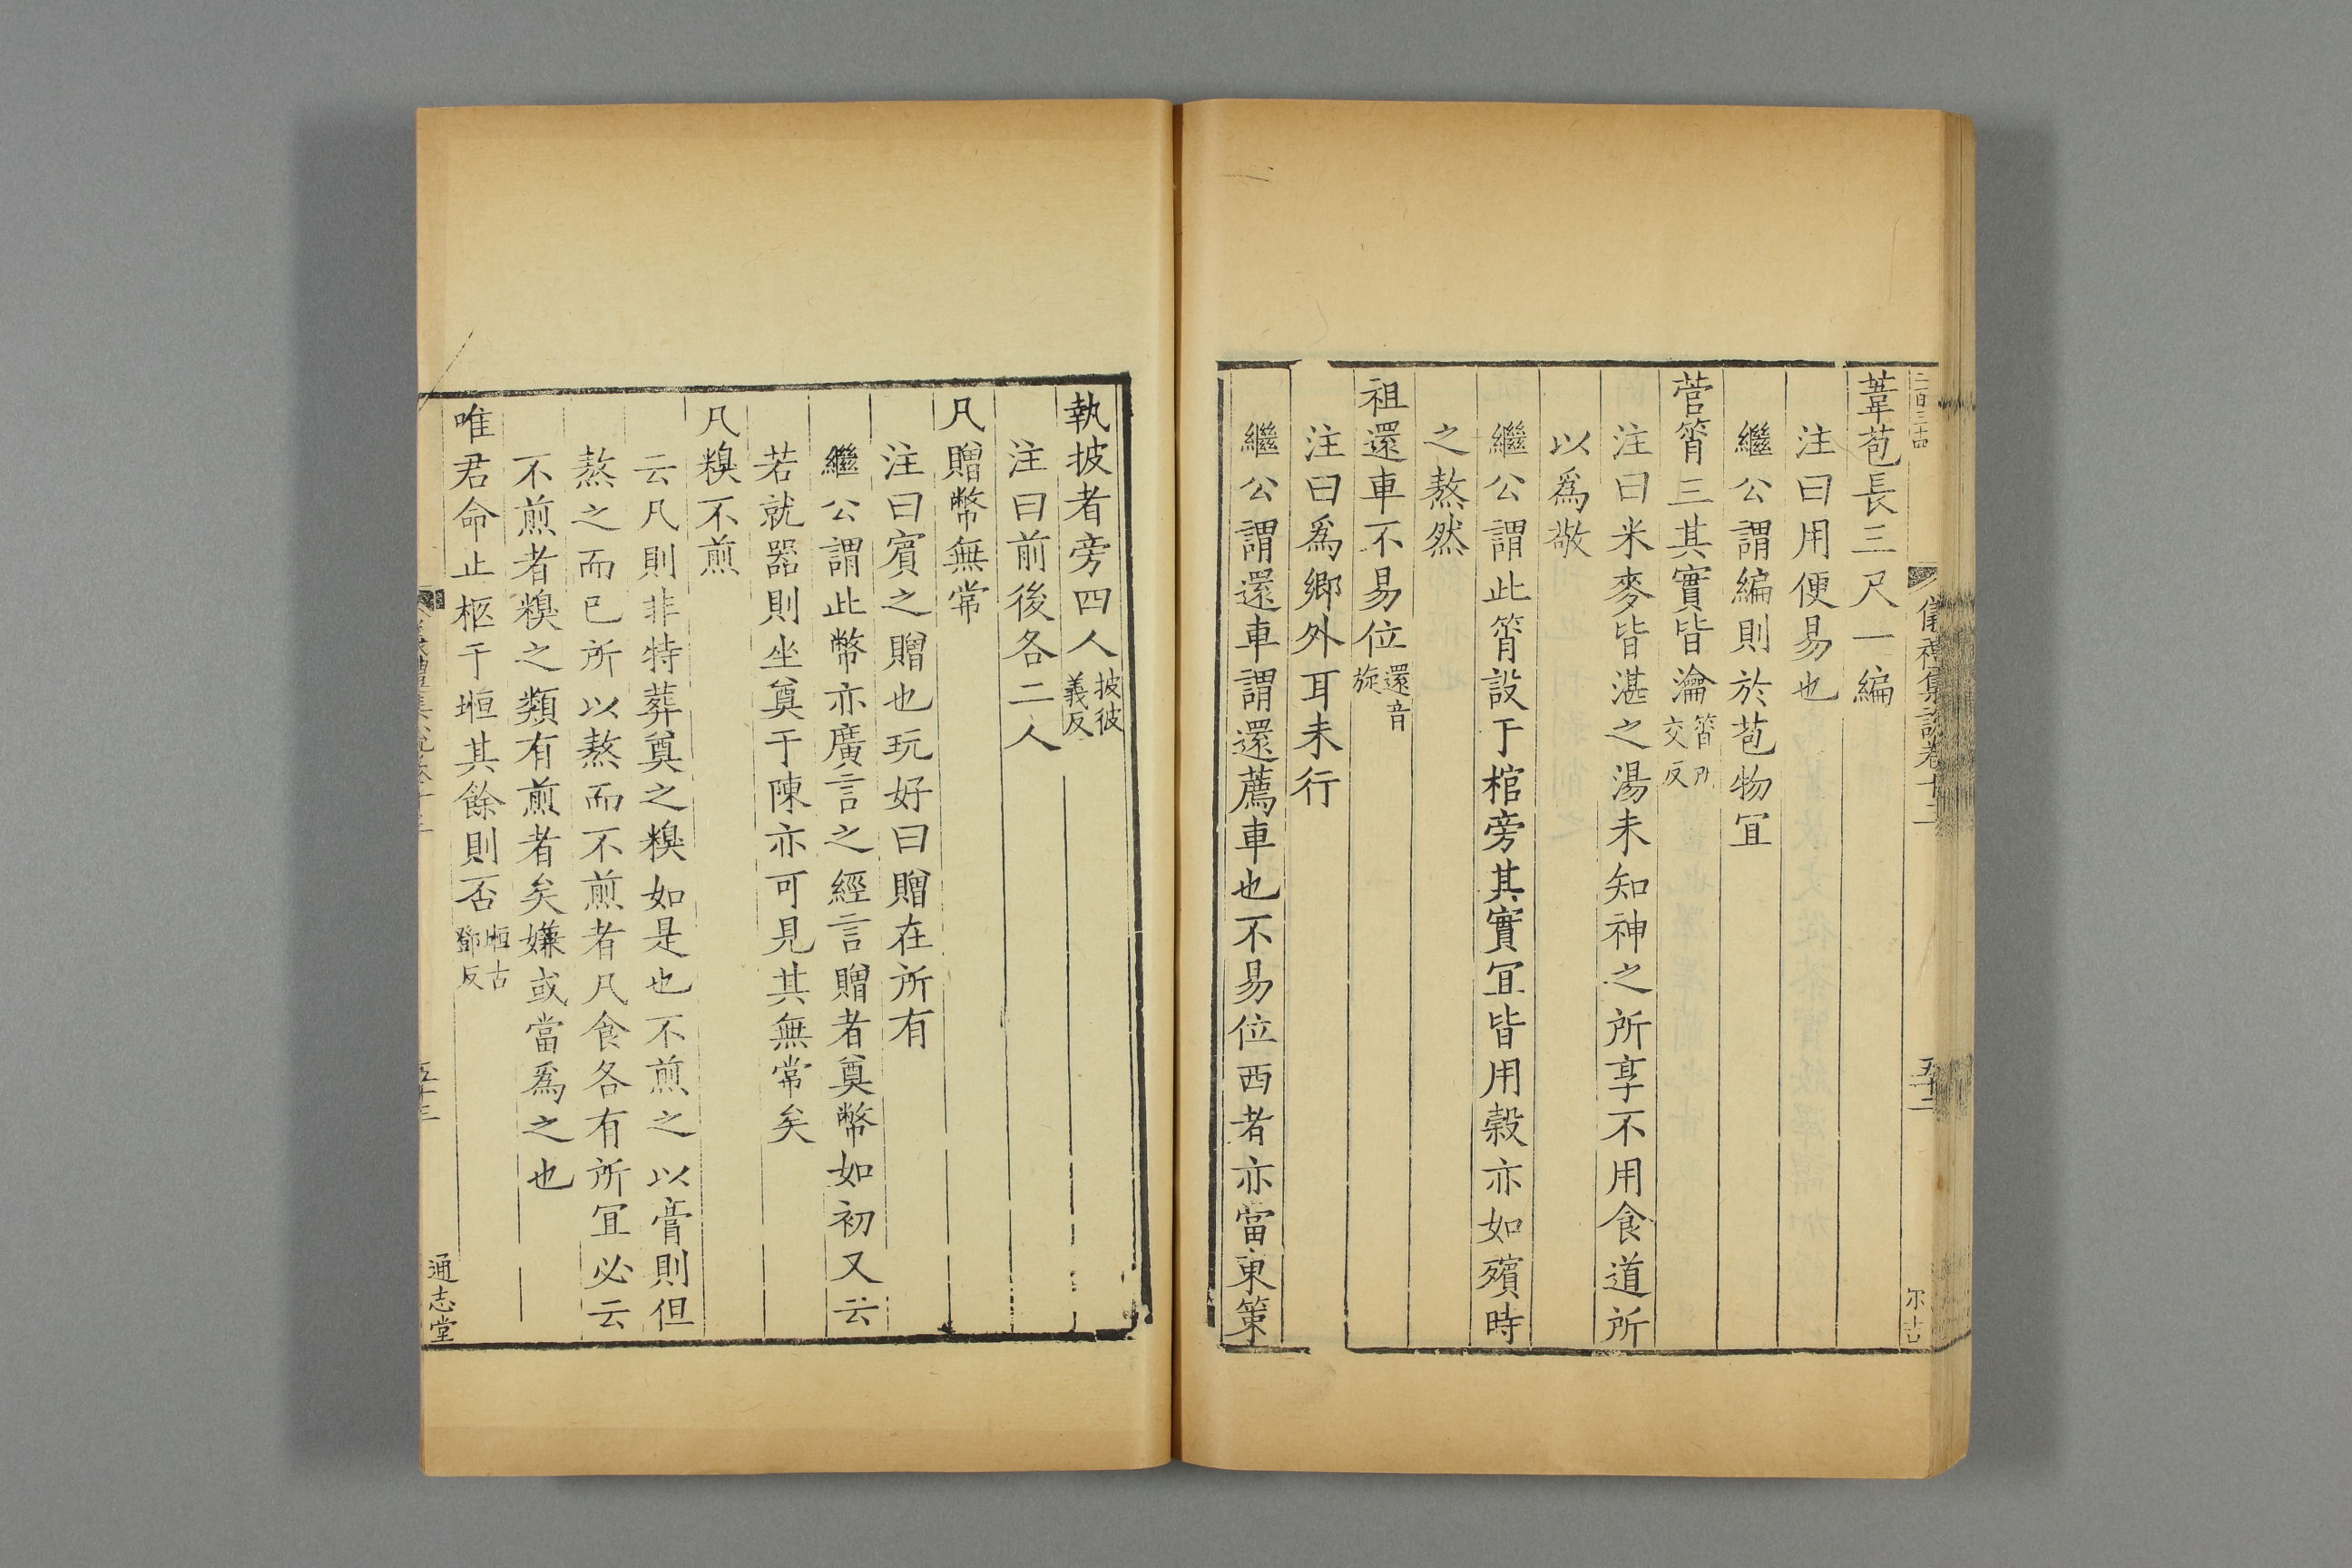 二百三十四
儀禮集說卷十二
五十二
尔吉
葦苞長三尺一編
注曰用便易也
繼公謂編則於苞物冝
菅筲三其實皆瀹筲所交反
注曰米麥皆湛之湯未知神之所享不用食道所
以爲敬
繼公謂此筲設于棺旁其實冝皆用穀亦如殯時
之熬然
祖還車不易位還音旋
注曰爲鄉外耳未行
繼公謂還車謂還薦車也不易位西者亦當東筞
執披者旁四人披彼義反
注曰前後各二人
凡贈幣無常
注曰賓之贈也玩好曰贈在所有
繼公謂此幣亦廣言之經言贈者奠幣如初又云
若就器則坐奠于陳亦可見其無常矣
凡糗不煎
云凡則非特葬奠之糗如是也不煎之以膏則但
熬之而已所以熬而不煎者凡食各有所冝必云
不煎者糗之類有煎者矣嫌或當爲之也
唯君命止柩于堩其餘則否堩古鄧反
五十三
通志堂